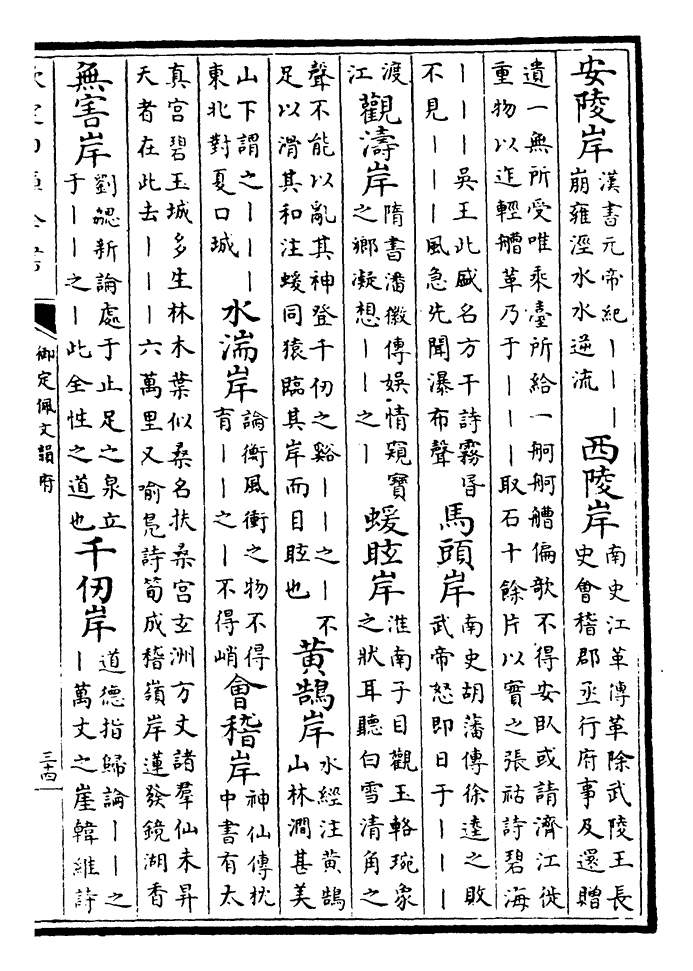 安陵岸漢書元帝紀｜｜｜崩雍涇水水逆流西陵岸南史江革傳革除武陵王長史會稽郡丞行府事及還贈
遺一無所受唯乘臺所給一舸舸艚偏欹不得安臥或請濟江徙
重物以迮輕艚革乃于｜｜｜取石十餘片以實之張祜詩碧海
｜｜｜吳王此盛名方干詩霧昏不見｜｜｜風急先聞瀑布聲馬頭岸南史胡藩傳徐逵之敗武帝怒即日于｜｜｜
渡江觀濤岸隋書潘徽傳娛情窺寶之鄉凝想｜｜之｜蝯眩岸淮南子目觀玉輅琬象之狀耳聽白雪清角之
聲不能以亂其神登千仞之谿｜｜之｜不足以滑其和注蝯同猿臨其岸而目眩也黃鵠岸水經注黃鵠山林澗甚美
山下謂之｜｜｜東北對夏口城水湍岸論衡風衝之物不得育｜｜之｜不得峭會稽岸神仙傳枕中書有太
真宫碧玉城多生林木葉似桑名扶桑宫玄洲方丈諸羣仙未昇
天者在此去｜｜｜六萬里又喻鳧詩筍成稽嶺岸蓮發鏡湖香
無害岸劉勰新論處于止足之泉立于｜｜之｜此全性之道也千仞岸道德指歸論｜｜之｜萬丈之崖韓維詩
御定佩文韻府
三十四